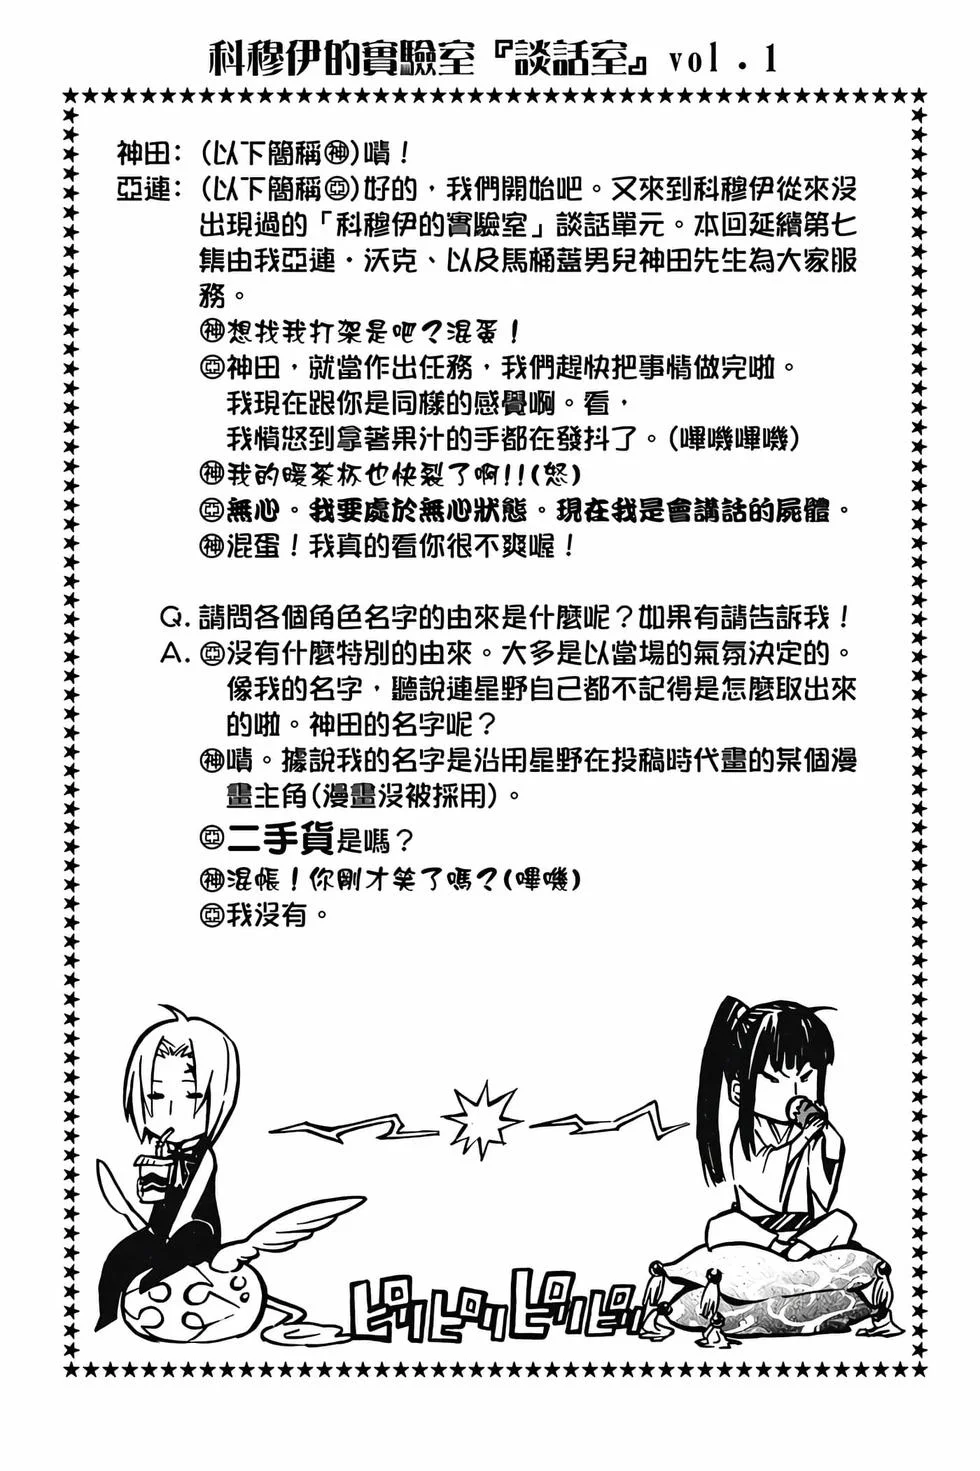 科穆伊的實驗室『談話室』vol.1
神田：(以下簡稱㊙神)嘖！
亞連：(以下簡稱亞)好的，我們開始吧。又來到科穆伊從來沒
出現過的「科穆伊的實驗室」談話單元。本回延續第七
集由我亞連．沃克、以及馬桶蓋男兒神田先生為大家服
務。
神想找我打架是吧？混蛋！
亞神田，就當作出任務，我們趕快把事情做完啦。
我現在跟你是同樣的感覺啊。看，
我憤怒到拿著果汁的手都在發抖了。(嗶嘰嗶嘰)
神我的暖茶杯也快裂了啊!!(怒)
亞無心。我要處於無心狀態。現在我是會講話的屍體。
神混蛋！我真的看你很不爽喔！
Q. 請問各個角色名字的由來是什麼呢？如果有請告訴我！
A. 亞沒有什麼特別的由來。大多是以當場的氣氛決定的。
像我的名字，聽說連星野自己都不記得是怎麼取出來
的啦。神田的名字呢？
神嘖。據說我的名字是沿用星野在投稿時代畫的某個漫
畫主角(漫畫沒被採用)。
亞二手貨是嗎？
神混帳！你剛才笑了嗎？(嗶嘰)
亞我沒有。
ピリピリピリピリ